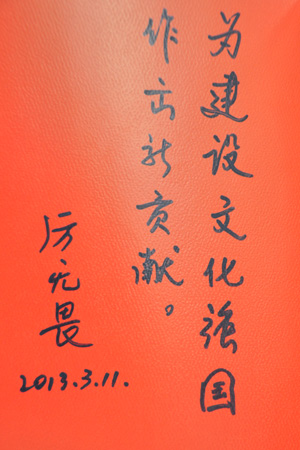 为建设文化强国
作出新贡献。
厉无畏
2013.3.11.